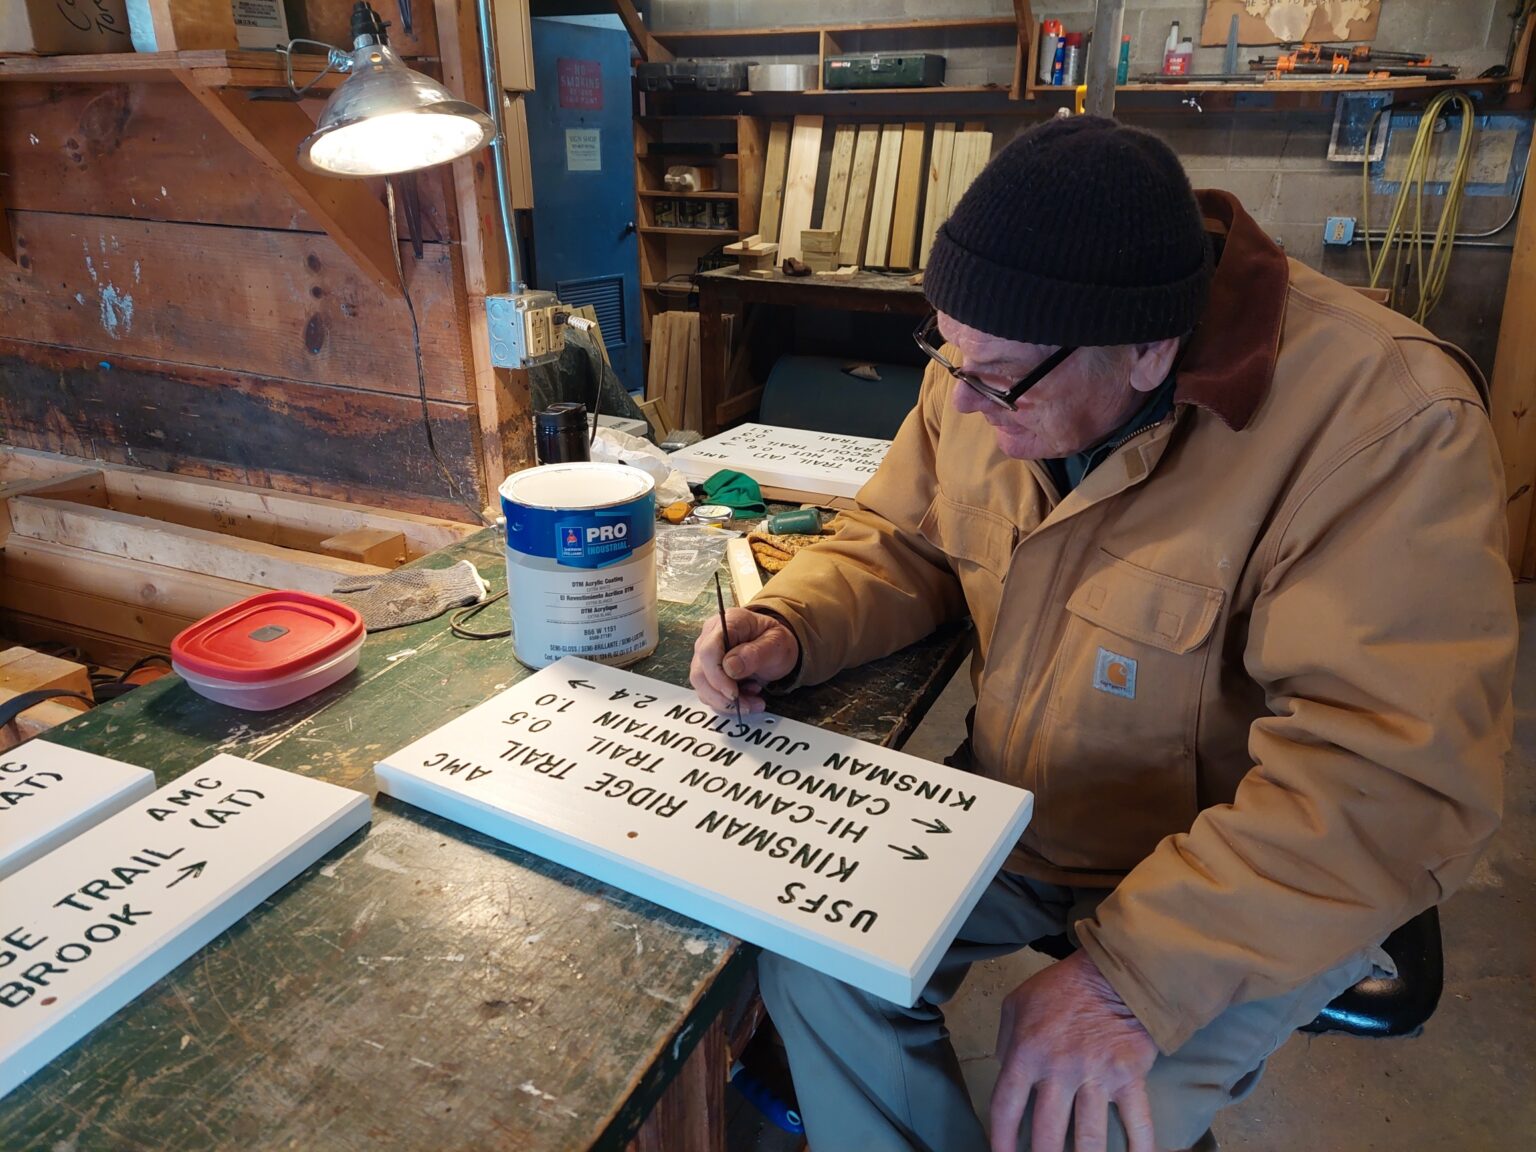 NO
SMOKING
SIGN SHOP
PRO
INDUSTRIAL
DTM Acrylic Coating
EXTRA WHITE
El Revestimiento Acrílico DTM
EXTRA BLANCO
DTM Acrylique
B66 W 1151
SEMI-GLOSS / SEMI-BRILLANTE / SEMI-LUSTRE
USFS AMC
KINSMAN RIDGE TRAIL
← HI-CANNON TRAIL 0.5
← CANNON MOUNTAIN 1.0
KINSMAN JUNCTION 2.4 →
AMC
GE TRAIL (AT)
BROOK →
(AT)
AMC
OD TRAIL (AT)
0.6 →
SCOUT TRAIL 0.3
carhartt